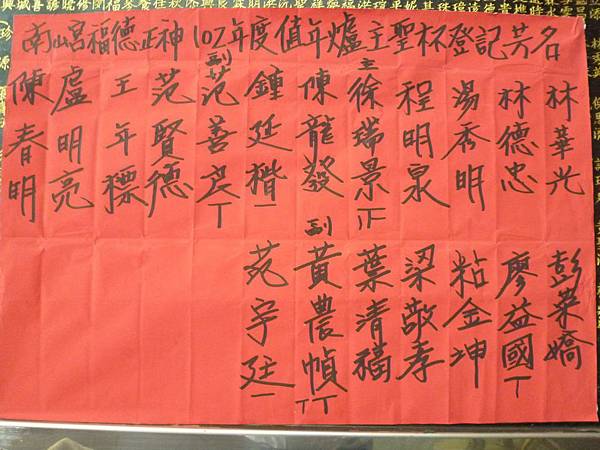 南山宮福德正神102年度值年爐主聖杯登記芳名
林華光
林德忠
湯秀明
程明泉
主
徐瑞景正
陳龍發
鍾廷楷一
副
范善良丅
范賢德
王年標
盧明亮
陳春明
彭菜嬌
廖益國丅
粘金坤
梁敬孝
葉清福
副
黃農幀丅丅
范宇廷一